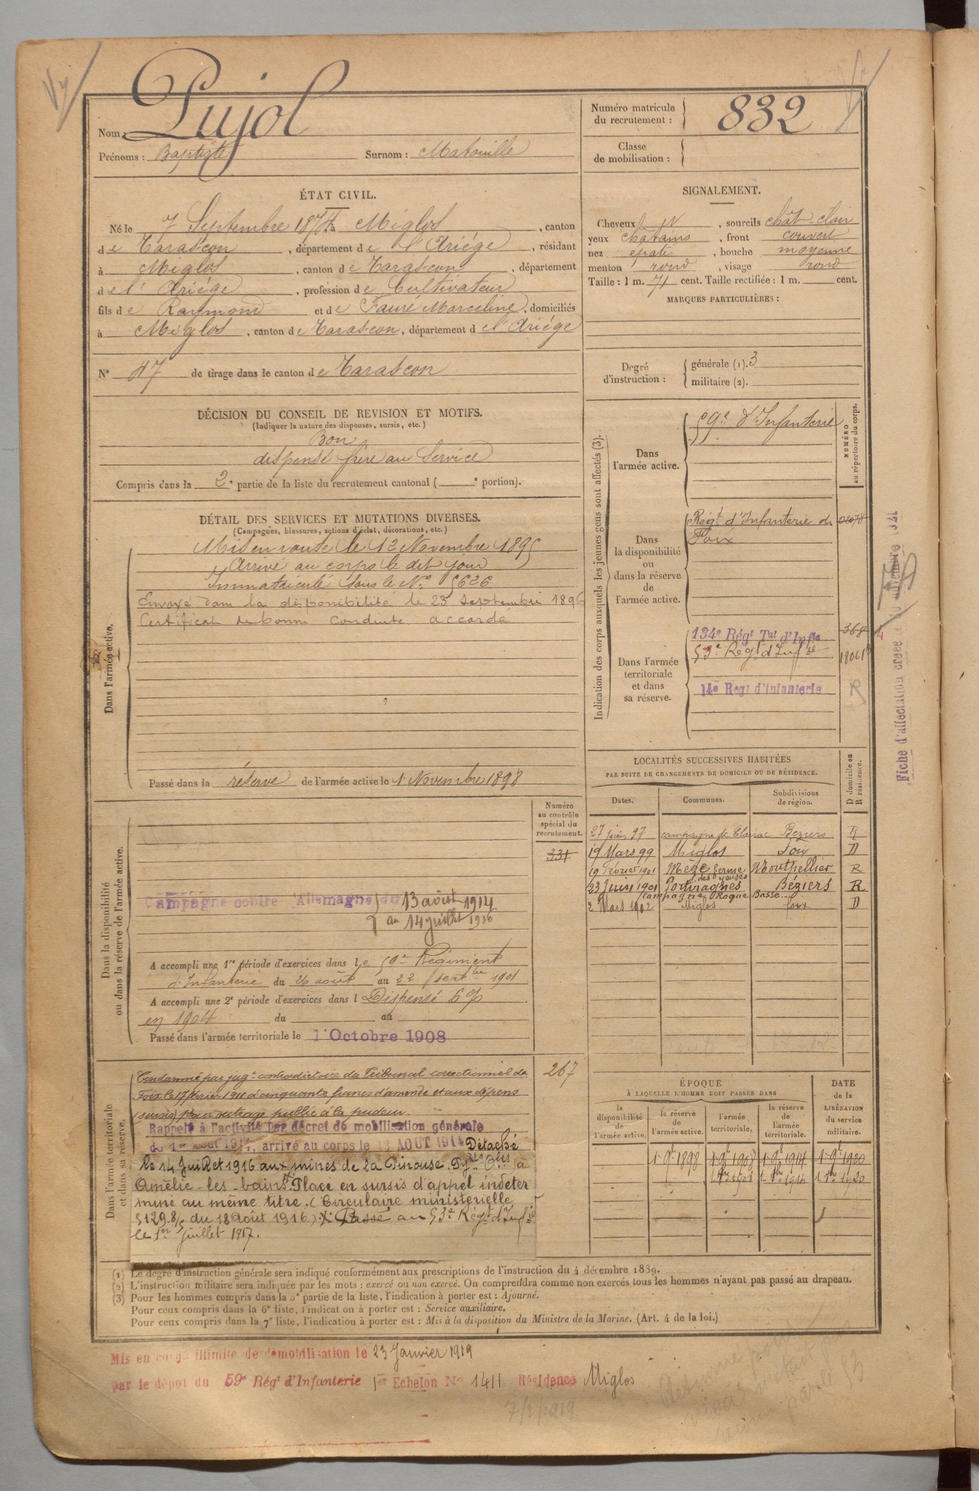 Nom : Pujol
Prénoms : Baptiste Surnom : Matouille
Numéro matricule du recrutement : 832
Classe de mobilisation :
ÉTAT CIVIL.
Né le 7 Septembre 1874 à Miglos, canton
de Tarascon, département de l'Ariége, résidant
à Miglos, canton de Tarascon, département
de l'Ariége, profession de Cultivateur
fils de Raymond et de Fauré Marceline, domiciliés
à Miglos, canton de Tarascon, département de l'Ariége
N° 47 de tirage dans le canton de Tarascon
SIGNALEMENT.
Cheveux et, sourcils chât clair
yeux chatains, front couvert
nez épaté, bouche moyenne
menton rond, visage rond
Taille : 1 m. 71 cent. Taille rectifiée : 1 m. cent.
MARQUES PARTICULIÈRES :
Degré d'instruction :
générale (1). 3
militaire (2).
DÉCISION DU CONSEIL DE REVISION ET MOTIFS.
(Indiquer la nature des dispenses, sursis, etc.)
Bon
dispensé frère au Service
Compris dans la 2e partie de la liste du recrutement cantonal ( e portion).
DÉTAIL DES SERVICES ET MUTATIONS DIVERSES.
(Campagnes, blessures, actions d'éclat, décorations, etc.)
Dans l'armée active.
Mis en route le 12 Novembre 1895
Arrivé au corps le dit jour
Immatriculé sous le No 5626
Envoyé dans la disponibilité le 23 septembre 1896
Certificat de bonne conduite accordé
Passé dans la réserve de l'armée active le 1 Novembre 1898
Indication des corps auxquels les jeunes gens sont affectés (3).
NUMÉRO au répertoire du corps.
Dans l'armée active.
59e d'Infanterie
Dans la disponibilité ou dans la réserve de l'armée active.
Régt d'Infanterie de
Foix
Dans l'armée territoriale et dans sa réserve.
134e Régt Tal d'Infie
53e Régt d'Infie
14e Régt d'Infanterie
368
R
Fiche d'affectation créée le novembre 1921
LOCALITÉS SUCCESSIVES HABITÉES
PAR SUITE DE CHANGEMENTS DE DOMICILE OU DE RÉSIDENCE.
Dates. Communes. Subdivisions de région. D domicile ou R résidence.
27 juin 97 campagne de Clairac Beziers R
19 Mars 99 Miglos Foix D
19 Février 1901 Meze ferme des yeuses Montpellier R
23 Juin 1901 Portiragnes Campagne Roque Basse Béziers R
2 Mars 1902 Miglos foix D
Dans la disponibilité ou dans la réserve de l'armée active.
Numéro au contrôle spécial du recrutement.
331
Campagne contre l'Allemagne du 13 août 1914
au 14 juillet 1916
A accompli une 1re période d'exercices dans le 59e Régiment
d'Infanterie du 26 août au 22 septbre 1901
A accompli une 2e période d'exercices dans l Dispensé
en 1904 du au
Passé dans l'armée territoriale le 1 Octobre 1908
Dans l'armée territoriale et dans sa réserve.
267
Condamné par jugt contradictoire du Tribunal correctionnel de
Foix le 17 février 1911 à cinquante francs d'amende et aux dépens
(sursis) pour outrage public à la pudeur.
Rappelé à l'activité par décret de mobilisation générale
du 1er Août 1914, arrivé au corps le AOUT 1914 Détaché
le 14 Juillet 1916 aux mines de la Pinouse à
Amélie-les-bains. Placé en sursis d'appel indéter
miné au même titre. (Circulaire ministérielle
5129.8/ du 18 août 1916). Passé au 53e Régt d'Infie
le 1er Juillet 1917.
ÉPOQUE
A LAQUELLE L'HOMME DOIT PASSER DANS
la disponibilité de l'armée active. la réserve de l'armée active. l'armée territoriale. la réserve de l'armée territoriale.
DATE de la LIBÉRATION du service militaire.
1 9e 1898 1 9e 1908 1 9e 1914 1 9e 1920
(1) Le degré d'instruction générale sera indiqué conformément aux prescriptions de l'instruction du 4 décembre 1889.
(2) L'instruction militaire sera indiquée par les mots : exercé ou non exercé. On comprendra comme non exercés tous les hommes n'ayant pas passé au drapeau.
(3) Pour les hommes compris dans la 5e partie de la liste, l'indication à porter est : Ajourné.
Pour ceux compris dans la 6e liste, l'indication à porter est : Service auxiliaire.
Pour ceux compris dans la 7e liste, l'indication à porter est : Mis à la disposition du Ministre de la Marine. (Art. 4 de la loi.)
Mis en congé illimité de démobilisation le 23 Janvier 1919
par le dépôt du 59e Régt d'Infanterie 1er Echelon No 1411 Résidence Miglos